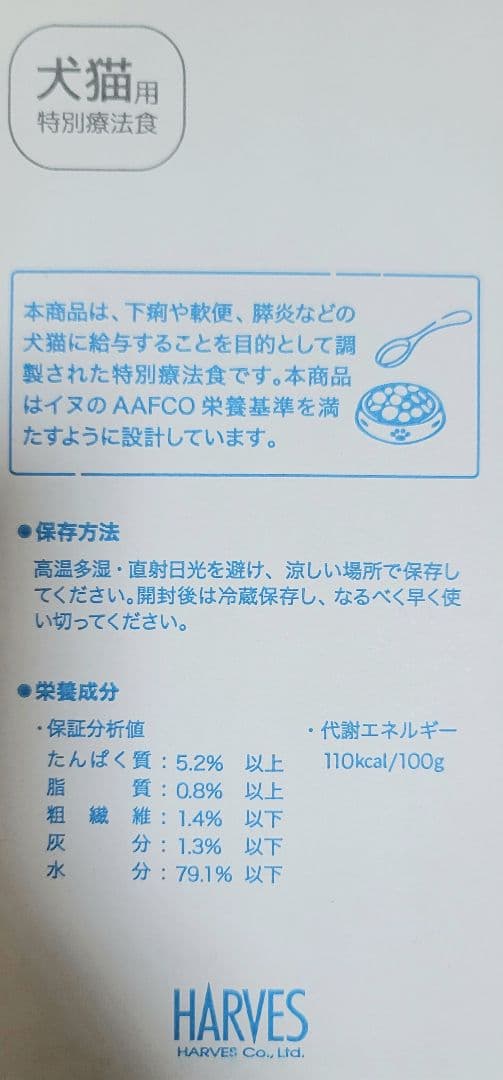 犬猫用
特別療法食
本商品は、下痢や軟便、膵炎などの
犬猫に給与することを目的として調
製された特別療法食です。本商品
はイヌのAAFCO栄養基準を満
たすように設計しています。
●保存方法
高温多湿・直射日光を避け、涼しい場所で保存し
てください。開封後は冷蔵保存し、なるべく早く使
い切ってください。
●栄養成分
・保証分析値
たんぱく質：5.2% 以上
脂質：0.8% 以上
粗繊維：1.4% 以下
灰分：1.3% 以下
水分：79.1% 以下
・代謝エネルギー
110kcal/100g
HARVES
HARVES Co., Ltd.